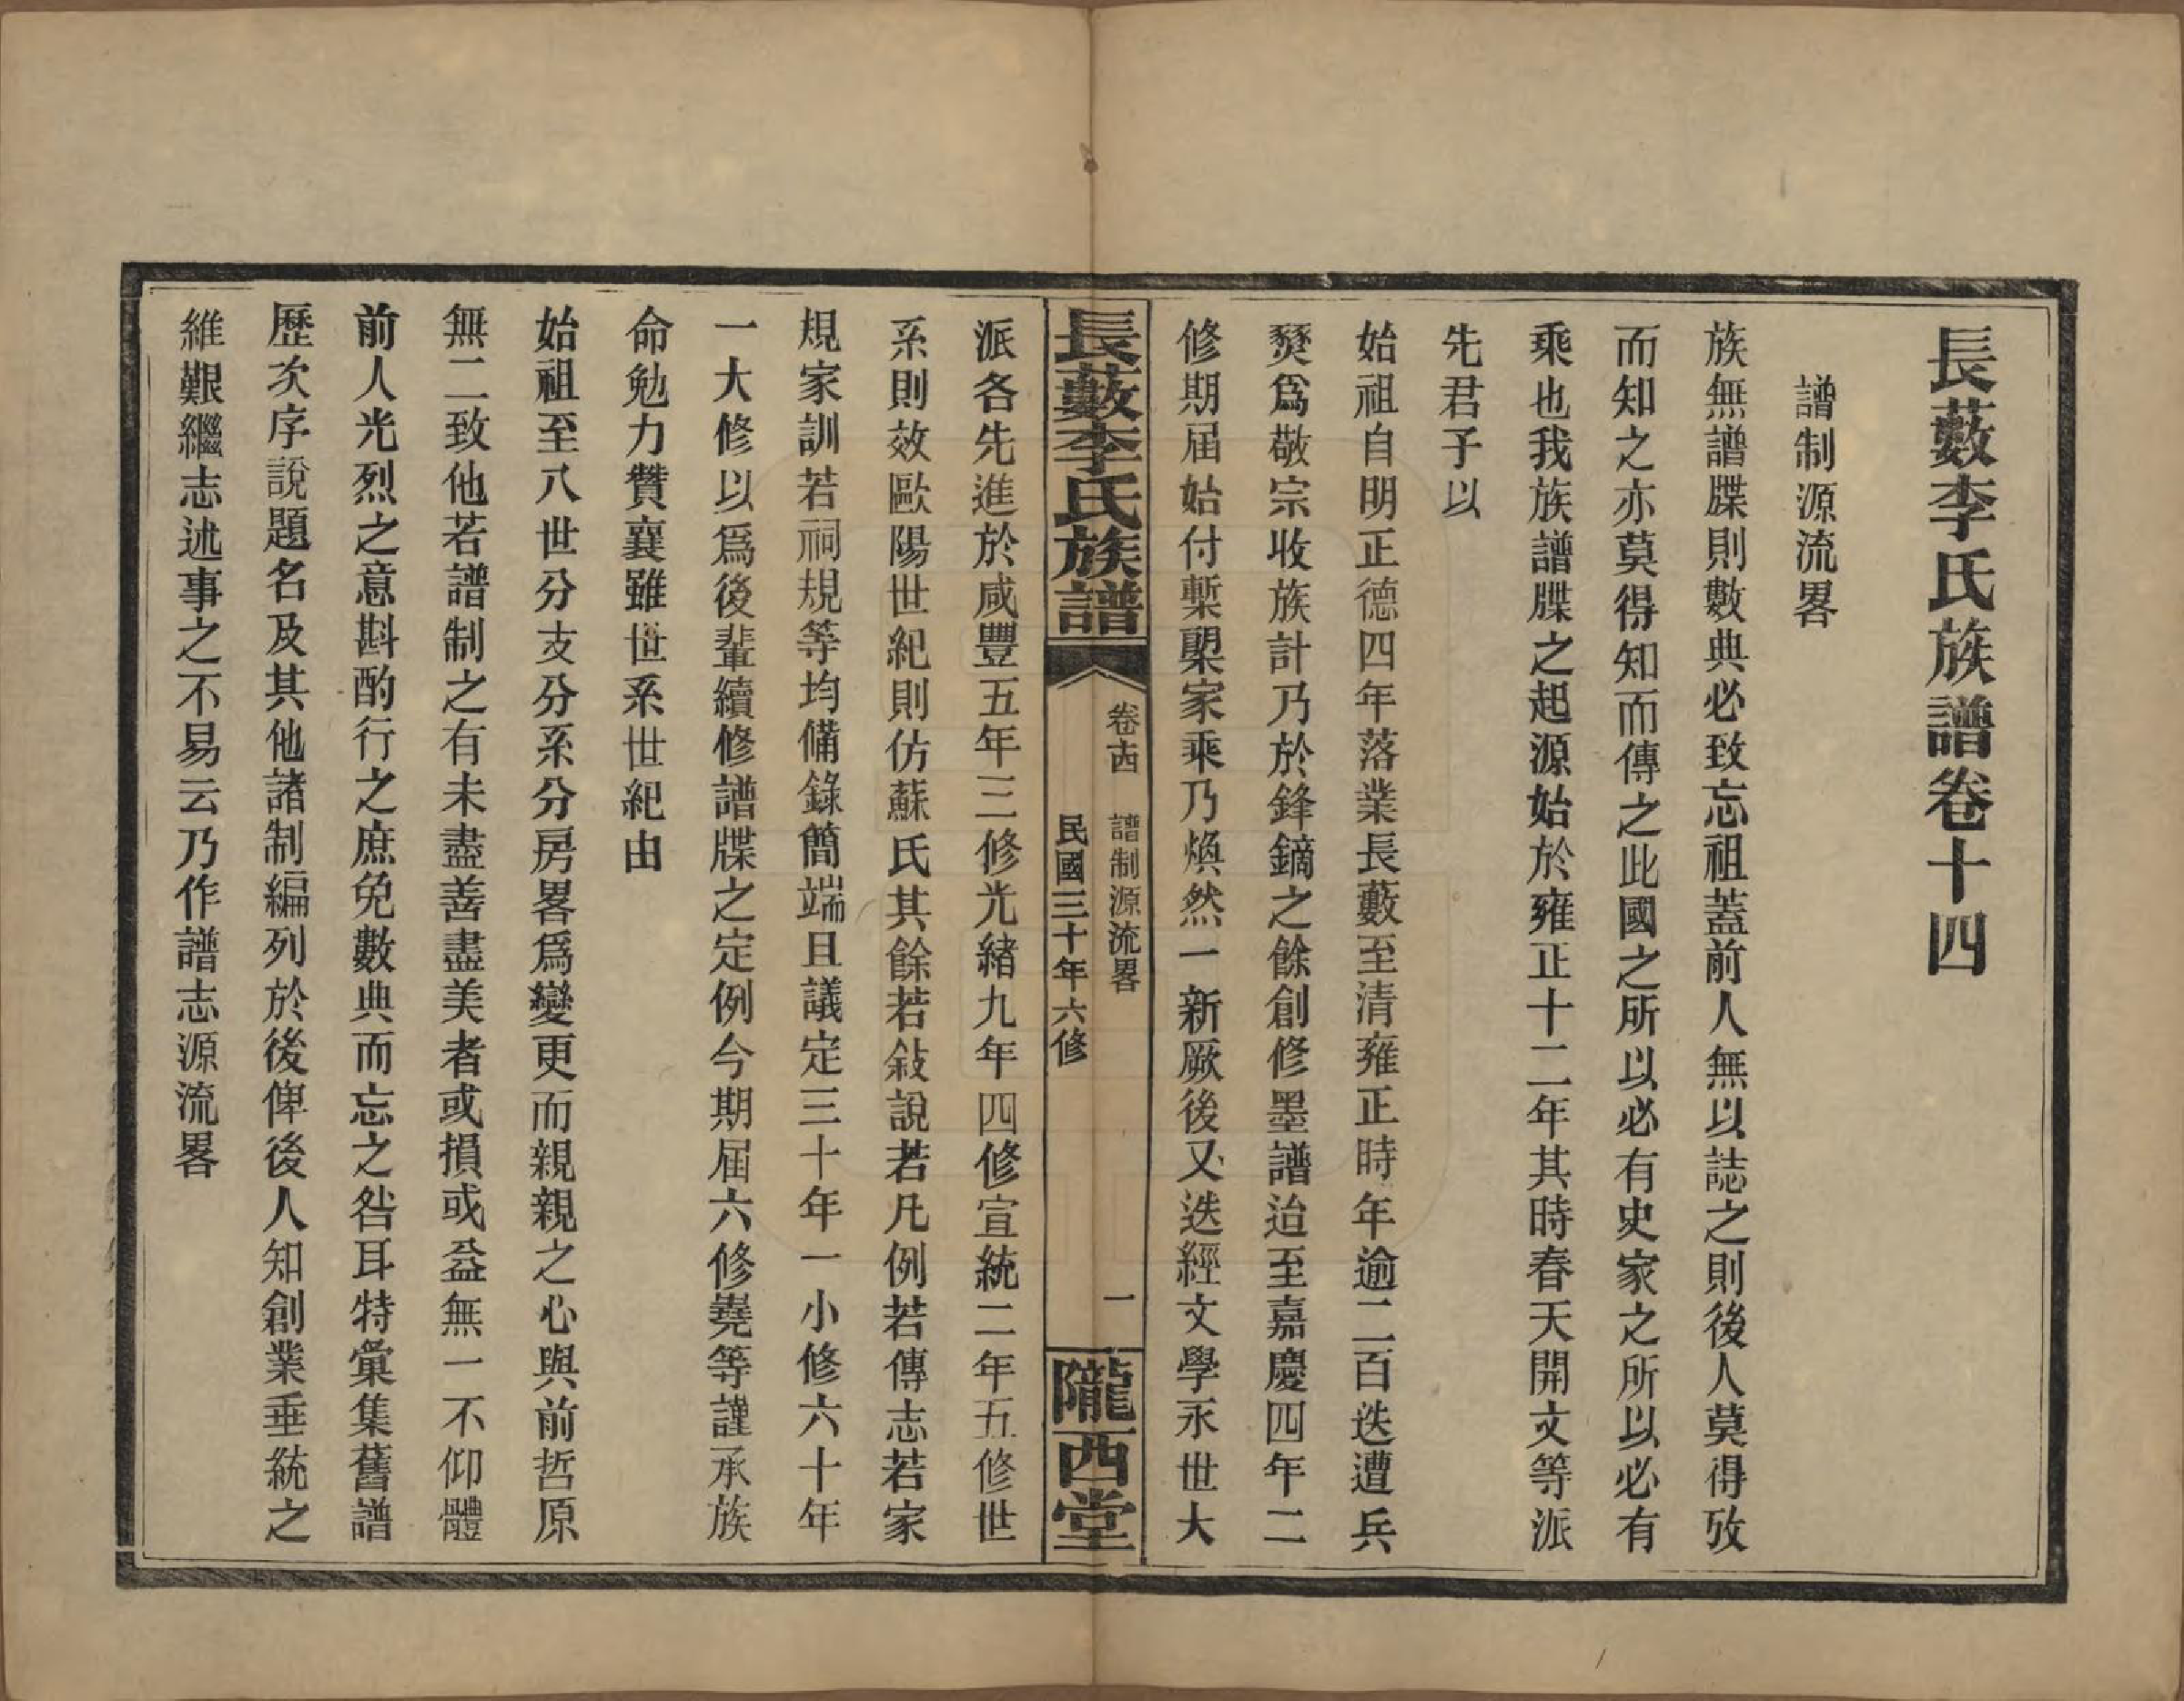 長藪李氏族譜卷十四
譜制源流畧
族無譜牒則數典必致忘祖蓋前人無以誌之則後人莫得攷
而知之亦莫得知而傳之此國之所以必有史家之所以必有
乘也我族譜牒之起源始於雍正十二年其時春天開文等派
先君子以
始祖自明正德四年落業長藪至清雍正時年逾二百迭遭兵
燹爲敬宗收族計乃於鋒鏑之餘創修墨譜迨至嘉慶四年二
修期屆始付槧㮚家乘乃煥然一新厥後又迭經文學永世大
長藪李氏族譜
卷十四 譜制源流畧 一
民國三十年六修
隴西堂
派各先進於咸豐五年三修光緒九年四修宣統二年五修世
系則效歐陽世紀則仿蘇氏其餘若敍說若凡例若傳志若家
規家訓若祠規等均備錄簡端且議定三十年一小修六十年
一大修以爲後輩續修譜牒之定例今期屆六修堯等謹承族
命勉力贊襄雖世系世紀由
始祖至八世分支分系分房畧爲變更而親親之心與前哲原
無二致他若譜制之有未盡善盡美者或損或益無一不仰體
前人光烈之意斟酌行之庶免數典而忘之咎耳特彙集舊譜
歷次序說題名及其他諸制編列於後俾後人知創業垂統之
維艱繼志述事之不易云乃作譜志源流畧